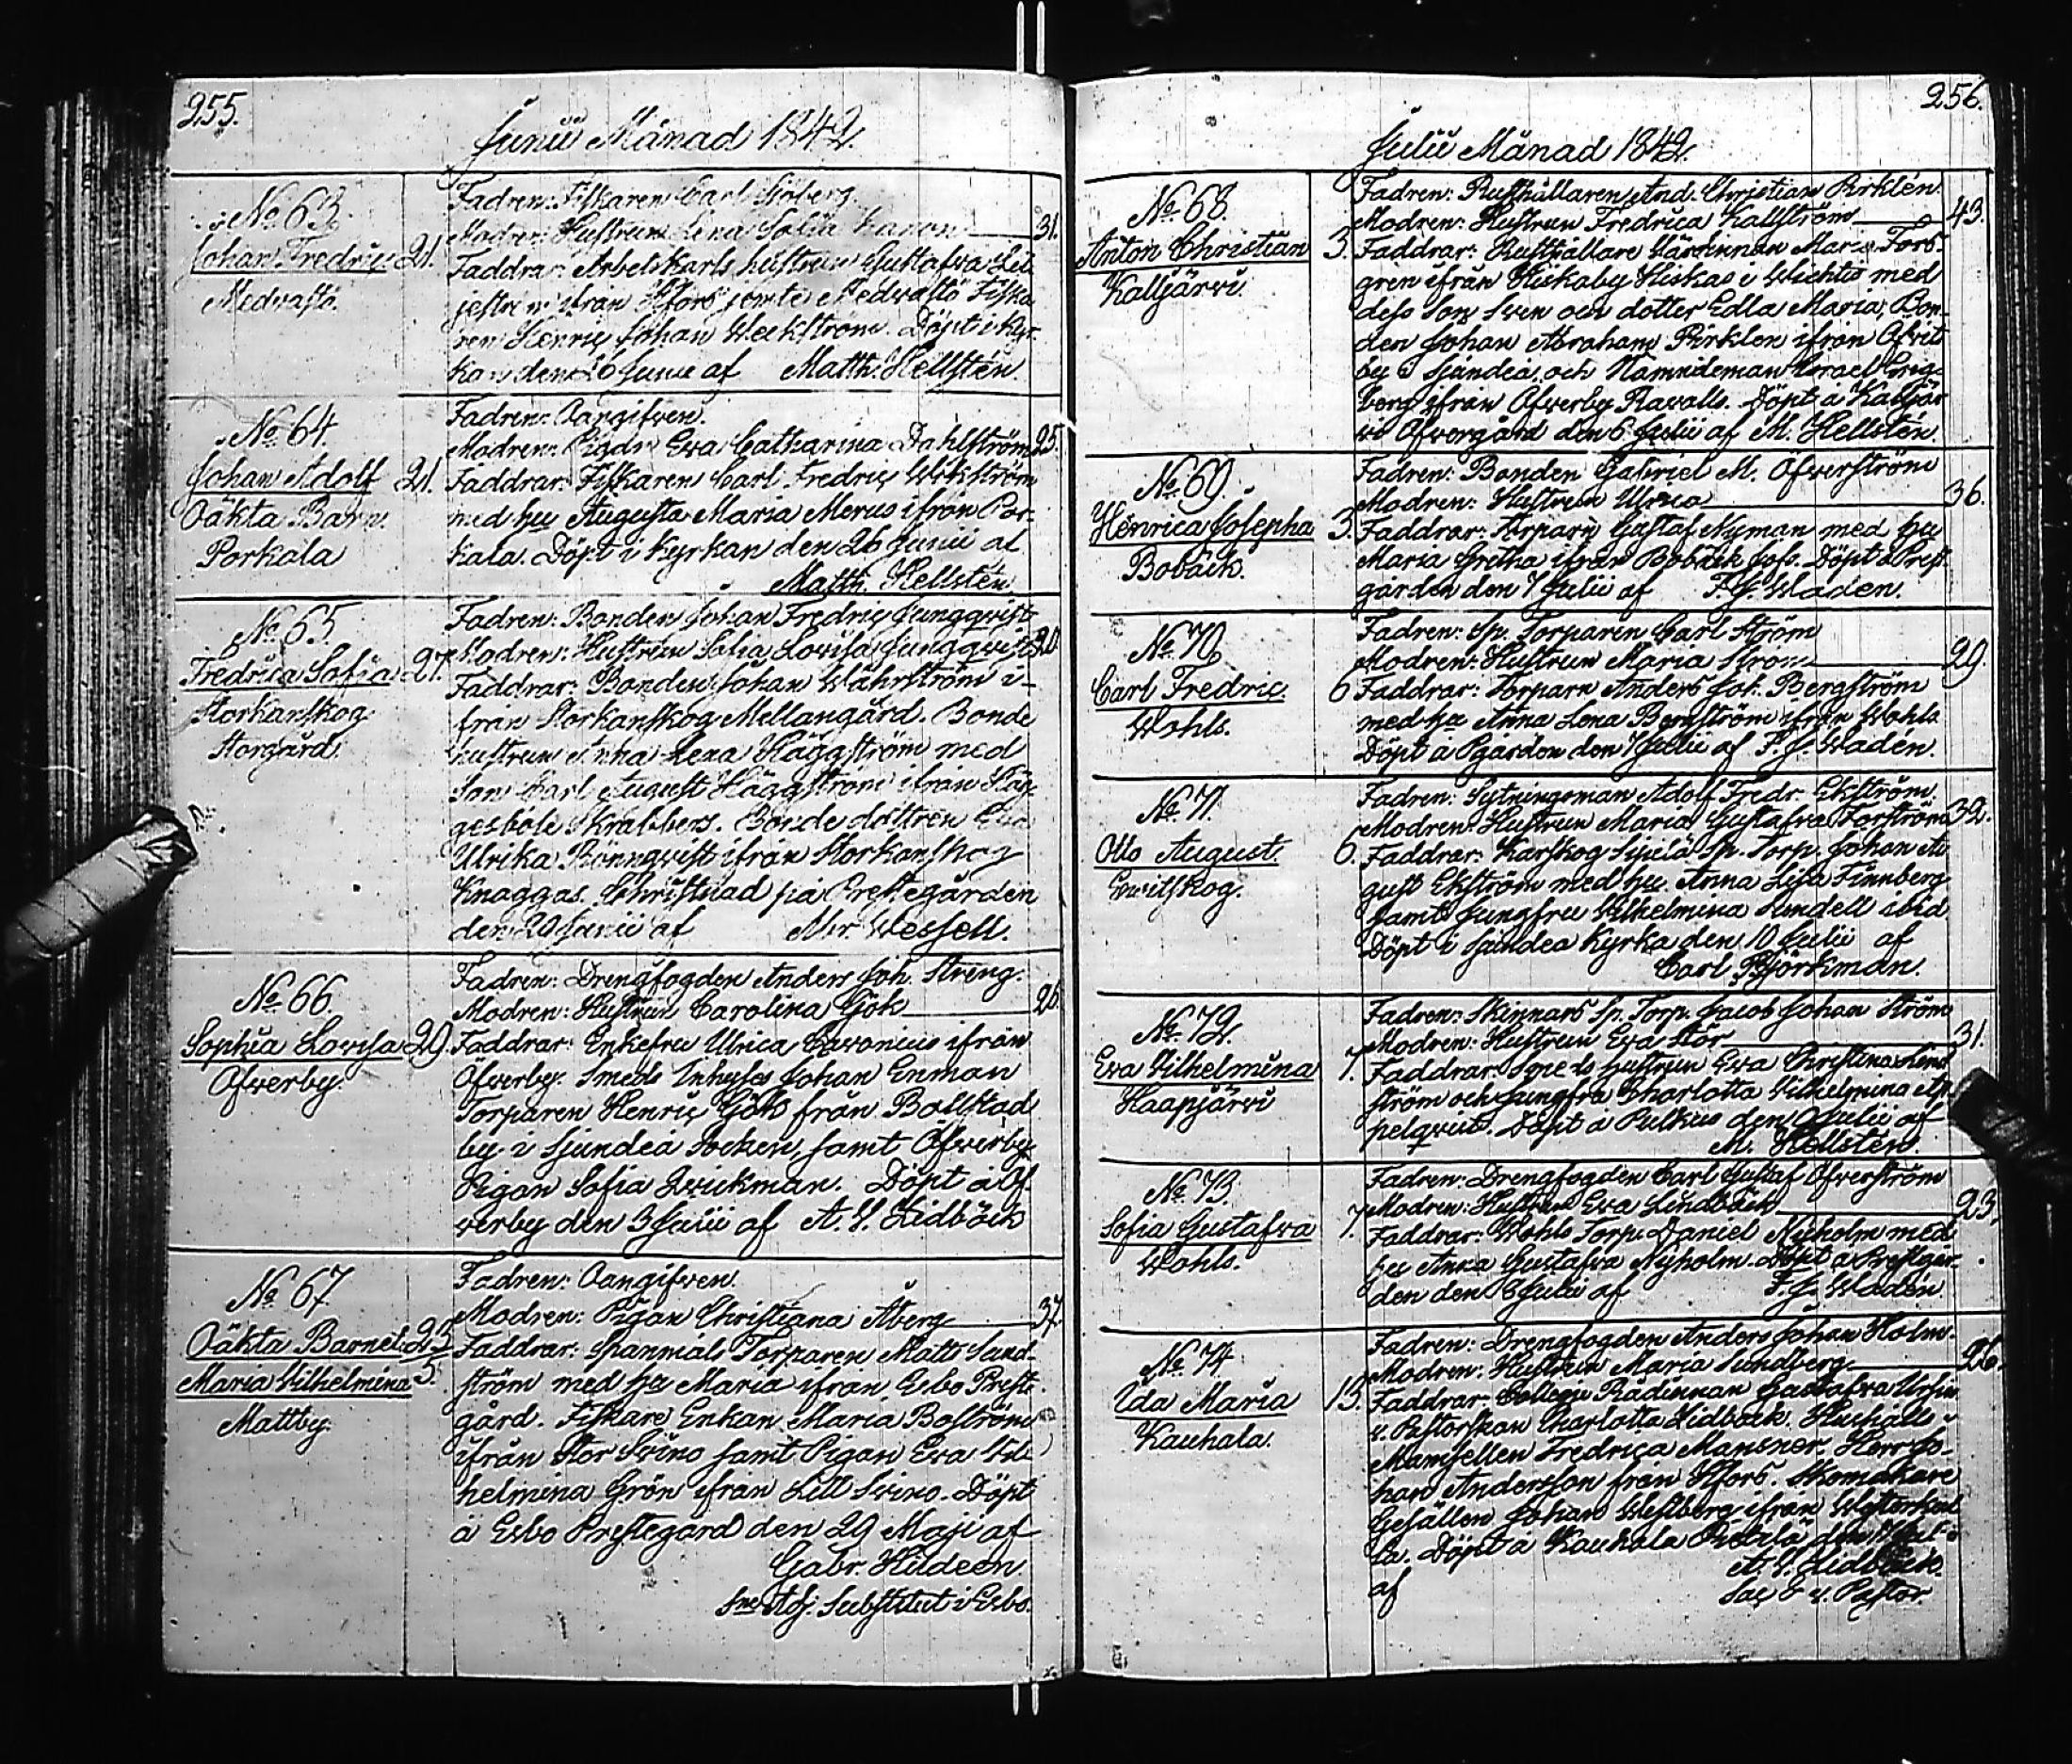 255.
Junii Månad 1842.
No 63.
Johan Fredric 21.
Medvastö.
Fadren: Fiskaren Carl Sjöberg.
Modren: Hustrun Lena Sofia 31.
Faddrar: Arbetskarls hustrun Gustafva Lil
jeström ifrån Hfors jemte Medvastö Fiska
ren Henric Johan Weckström. Döpt i Kyr-
kan den 26 Junii af Matth. Hellstén.
No 64.
Johan Adolf 21.
Oäkta Barn.
Porkala
Fadren: Oangifven.
Modren: Pigan Eva Catharina Dahlström 25.
Faddrar: Fiskaren Carl Fredric Wikström
med hu Augusta Maria Merus ifrån Por-
kala. Döpt i Kyrkan den 26 Junii af
Matth. Hellstén.
No 65.
Fredrica Sofia 27.
Storkanskog
Storgård.
Fadren: Bonden Johan Fredric Ljungqvist
Modren: Hustrun Sofia Lovisa Ljungqvist
Faddrar: Bonden Johan Wahrström i-
från Storkanskog Mellangård. Bonde
hustrun Anna Lena Häggström med
Son Carl August Häggström ifrån Häg-
gesböle Skrabbers. Bonde dottren Eva
Ulrika Rönnqvist ifrån Storkanskog
Knaggas. Christnad på Prestegården
den 29 Junii af Abr. Wessell.
No 66.
Sophia Lovisa 29.
Öfverby.
Fadren: Drengfogden Anders Joh. Streng.
Modren: Hustrun Carolina Gök 26
Faddrar: Enkefru Ulrica Cavonius ifrån
Öfverby. Smeds Inhyses Johan Enman
Torparen Henric Gök från Bollstad
by i Sjundeå Socken, samt Öfverby
Pigan Sofia Zwickman. Döpt å Öf-
verby den 3 Julii af A. V. Lidböck
No 67
Oäkta Barnet 23
Maria Vilhelmina 5.
Mattby.
Fadren: Oangifven.
Modren: Pigan Christiana Åberg 37
Faddrar: Torparen Matts Sand-
ström med hu Maria ifrån Esbo Preste-
gård. Fiskare Enkan Maria Boström
ifrån Stor Svino samt Pigan Eva Vil-
helmina Grön ifrån Lill Svino. Döpt
å Esbo Prestegård den 29 Maji af
Gabr. Hideen
Adj. Substitut i Esbo.
256.
Julii Månad 1842.
No 68.
Anton Christian 3.
Kalljärvi.
Fadren: Rusthållaren And. Christian Pirklén.
Modren: Hustrun Fredrica Hallström 43.
Faddrar: Rusthållare Värdinnan Maria Fors-
gren ifrån Hiskaby Hiskas i Wichtis med
dess Son Sven och dotter Edla Maria, Bon-
den Johan Abraham Pirklen ifrån Öfvit
by i Sjundeå, och Nämndeman Israel
berg ifrån Öfverby Ravalls. Döpt å Kalljär
vi Öfvergård den 6 Julii af M. Hellstén.
No 69.
Henrica Josepha 3.
Bobäck.
Fadren: Bonden Gabriel M. Öfverström
Modren: Hustrun Ulrica 36.
Faddrar: Torparn Gustaf Nyman med hu
Maria Gretha ifrån Bobäck Joss. Döpt å Prest-
gården den 7 Julii af F. J. Wadén.
No 70.
Carl Fredric. 6
Wohls.
Fadren: Sp. Torparen Carl Ström
Modren: Hustrun Maria Ström 29.
Faddrar: Torparn Anders Joh. Bergström
med hu Anna Lena Bergström ifrån Wohls
Döpt å Pgården den 7 Julii af F. J. Wadén.
No 71.
Otto August. 6.
Evitskog.
Fadren: Sytningsman Adolf Fredr. Ekström.
Modren: Hustrun Maria Gustafva Forström 32.
Faddrar: Karskog Sipilä Sp. Torp. Johan Au
gust Ekström med hu Anna Lisa Finnberg
samt Jungfru Vilhelmina Sundell ibid
Döpt i Sjundeå Kyrka den 10 Julii af
Carl Björkman.
No 72.
Eva Vilhelmina 7.
Haapjärvi
Fadren: Skinnars Sp. Torp. Jacob Johan Ström
Modren: Hustrun Eva Stör 31.
Faddrar: Smeds hustrun Eva Christina Lind
ström och Jungfru Charlotta Vilhelmina Ap-
pelqvist. Döpt å Pulkus den Julii af
M. Hellstén.
No 73.
Sofia Gustafva 7.
Wohls.
Fadren: Drengfogden Carl Gustaf Öfverström
Modren: Hustrun Eva Lindbäck 23.
Faddrar: Wohls Torp. Daniel Nyholm med
hu Anna Gustafva Nyholm. Döpt å Prestgår-
den den 8 Julii af F. J. Wadén
No 74.
Ida Maria 13.
Kauhala.
Fadren: Drengfogden Anders Johan Holm.
Modren: Hustrun Maria Sundberg 26.
Faddrar: College Rådinnan Gustafva Ursin
v. Pastorskan Charlotta Lidböck. Hushålls
Mamsellen Fredrica Mansner. Herr Jo-
han Andersson från Hfors. Skomakare
Gesällen Johan Westberg ifrån
la. Döpt å Kauhala
af A. V. Lidböck.
Sac & v. Pastor.